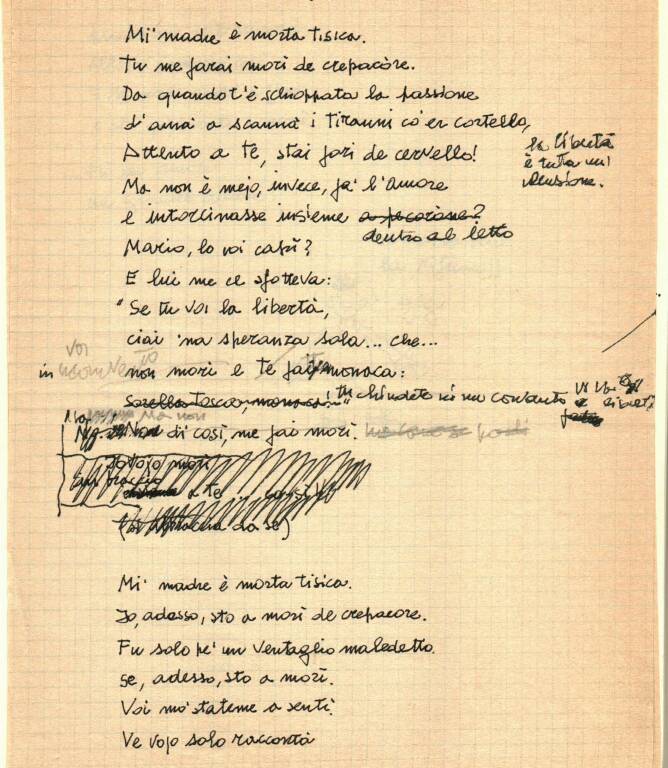 Mi' madre è morta tisica.
Tu me farai morì de crepacòre.
Da quando t'è schioppata la passione
d'annà a scannà i tiranni co' er cortello,
Attento a te, stai fori de cervello!
la libertà
è tutta un'i
llusione.
Ma non è mejo, invece, fa' l'amore
e intorcinasse insieme a pecorone?
dentro al letto
Mario, lo voi capì?
E lui me ce sfotteva:
"Se tu voi la libertà,
ciai 'na speranza sola... che...
voi
in
non mori e te fai monaca:
Sorella Tosca, monaca!"
chiudete in un convento
Ma non
Non di' così, me fai morì.
Io vojo morì
a te
da sé)
Mi' madre è morta tisica.
Io, adesso, sto a morì de crepacore.
Fu solo pe' un ventaglio maledetto
se, adesso, sto a morì.
Voi mo' stateme a sentì
Ve vojo solo raccontà